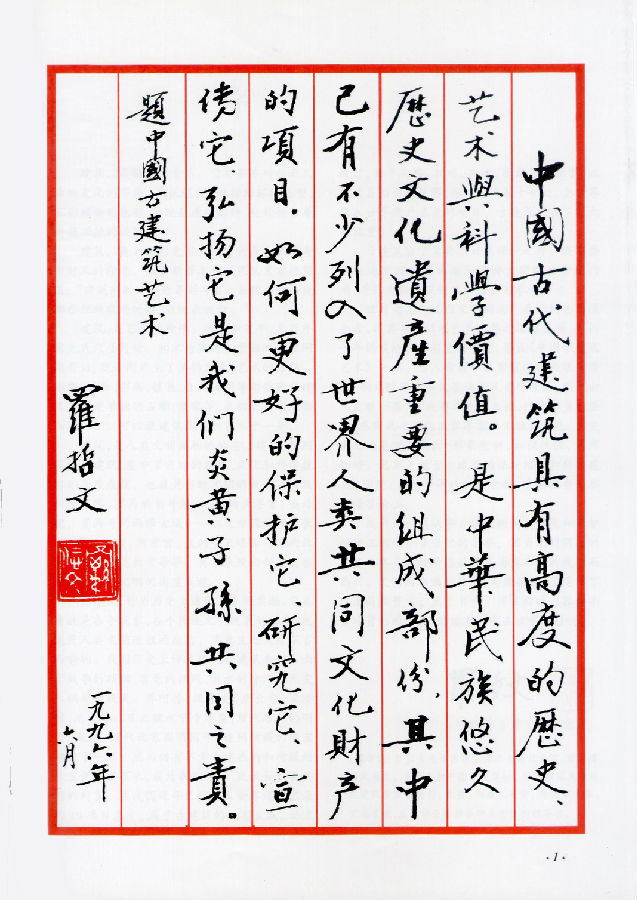 中國古代建筑具有高度的歷史、
艺术與科學價值。是中華民族悠久
歷史文化遺產重要的组成部份,其中
已有不少列入了世界人类共同文化财产
的項目。如何更好的保护它、研究它、宣
传它弘扬它是我们炎黄子孫共同之責。
題中國古建筑艺术
羅哲文
一九九六年
六月
·1·